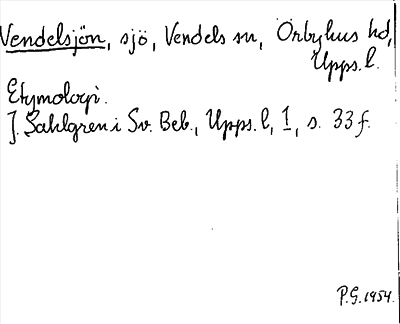 Vendelsjön, sjö, Vendels sn, Örbyhus hd,
Upps. l.
Etymologi.
J. Sahlgren i Sv. Beb., Upps. l, 1, s. 33 f.
P.G. 1954.